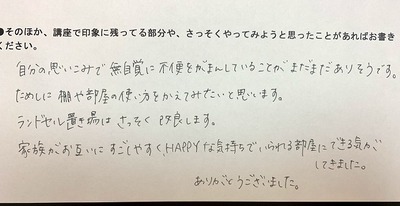 ●そのほか、講座で印象に残ってる部分や、さっそくやってみようと思ったことがあればお書き
ください。
自分の思いこみで無自覚に不便をがまんしていることがまだまだありそうです。
ためしに棚や部屋の使い方をかえてみたいと思います。
ランドセル置き場はさっそく改良します。
家族がお互いにすごしやすく、HAPPYな気持ちでいられる部屋にできる気が
してきました。
ありがとうございました。